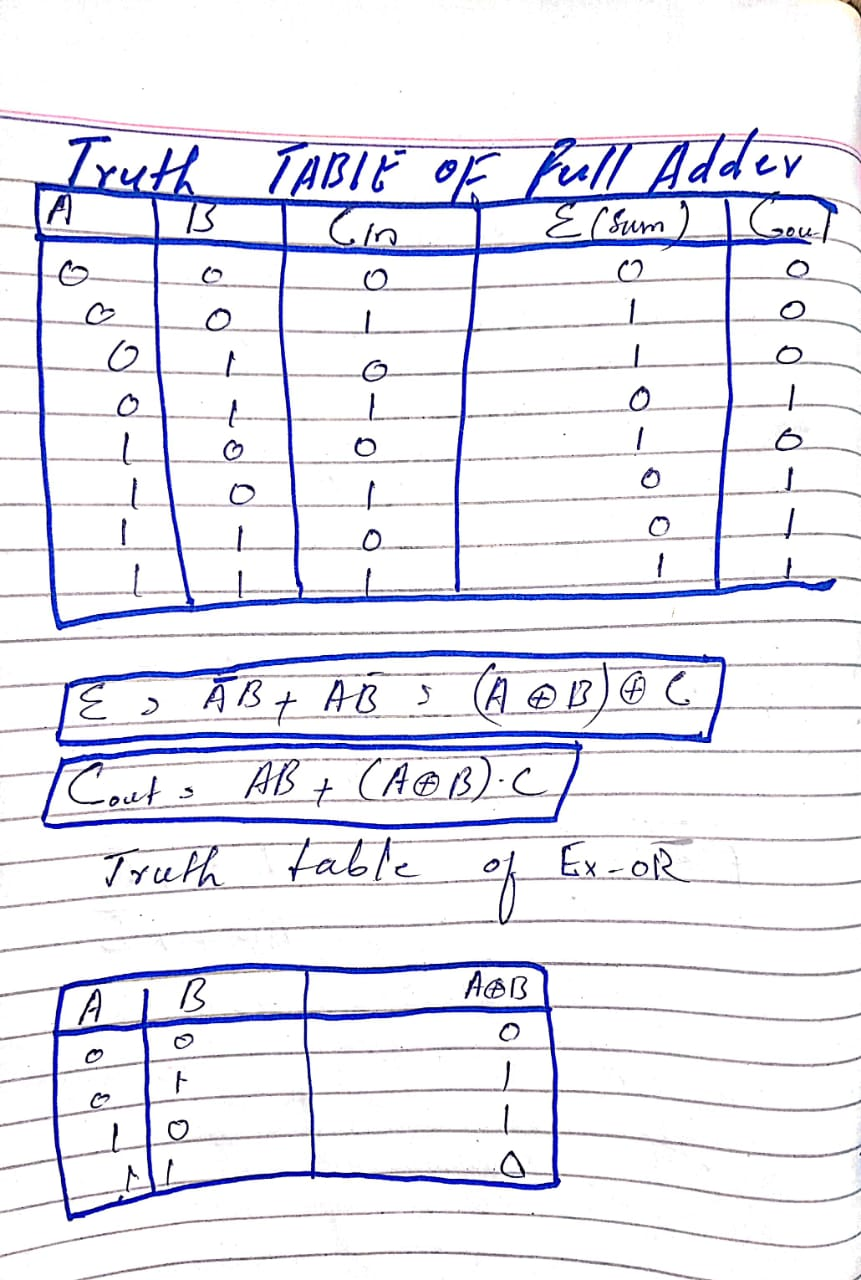 Truth TABLE OF Full Adder
A B Cin Σ (Sum) Cout
0 0 0 0 0
0 0 1 1 0
0 1 0 1 0
0 1 1 0 1
1 0 0 1 0
1 0 1 0 1
1 1 0 0 1
1 1 1 1 1
Σ = ĀB + AB̄ = (A ⊕ B) ⊕ C
Cout = AB + (A⊕B)·C
Truth table of Ex-OR
A B A⊕B
0 0 0
0 1 1
1 0 1
1 1 0